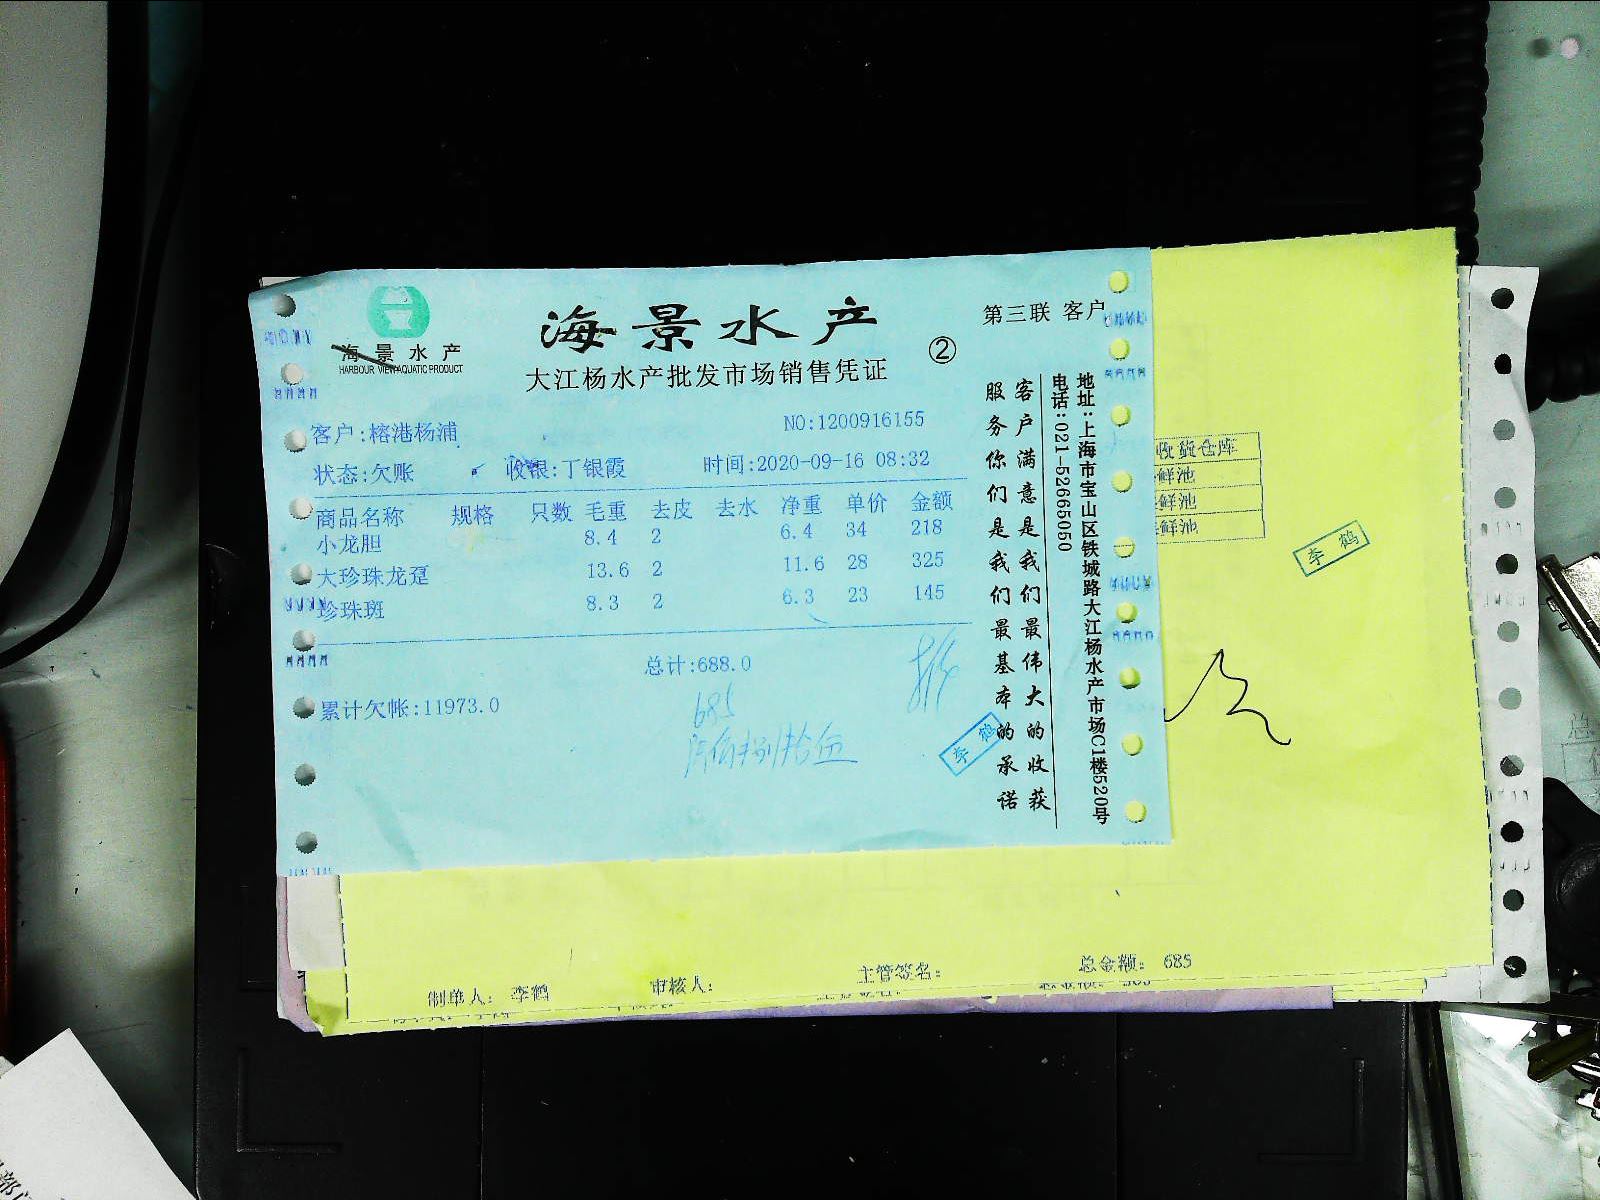 海景水产
HARBOUR VIEW AQUATIC PRODUCT
海景水产
大江杨水产批发市场销售凭证
②
第三联 客户
客户:榕港杨浦
NO:1200916155
状态:欠账 收银:丁银霞 时间:2020-09-16 08:32
商品名称 规格 只数 毛重 去皮 去水 净重 单价 金额
小龙胆 8.4 2 6.4 34 218
大珍珠龙趸 13.6 2 11.6 28 325
珍珠斑 8.3 2 6.3 23 145
总计:688.0
累计欠帐:11973.0
685
李鹤
客户满意是我们最伟大的收获
服务你们是我们最基本的承诺
地址:上海市宝山区铁城路大江杨水产市场C1楼520号
电话:021-52665050
收货仓库
鲜池
鲜池
鲜池
李鹤
制单人: 李鹤 审核人: 主管签名: 总金额: 685